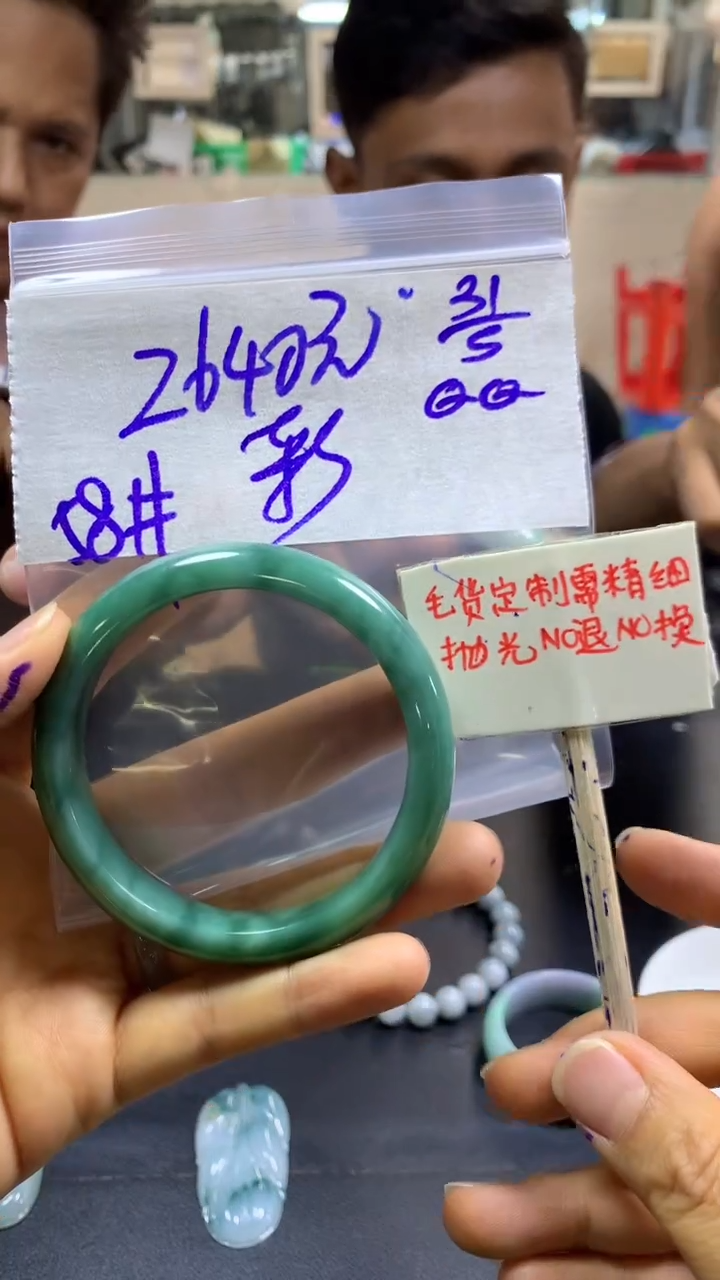 2640元
31/5
彩
58#
毛货定制需精细
抛光NO退NO换